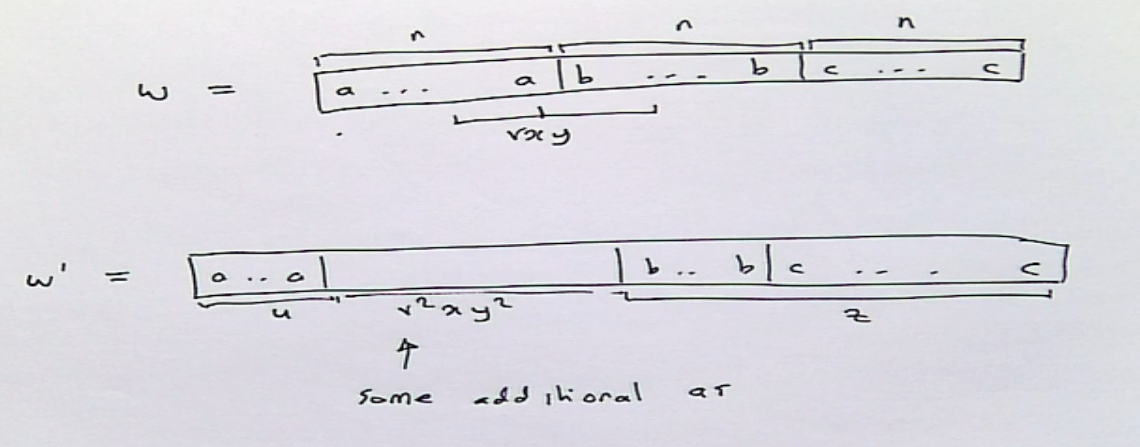 n n n
w = a ... a b ... b c ... c
vxy
w' = a .. a b .. b c .. . c
u v²xy² z
↑
some additional as